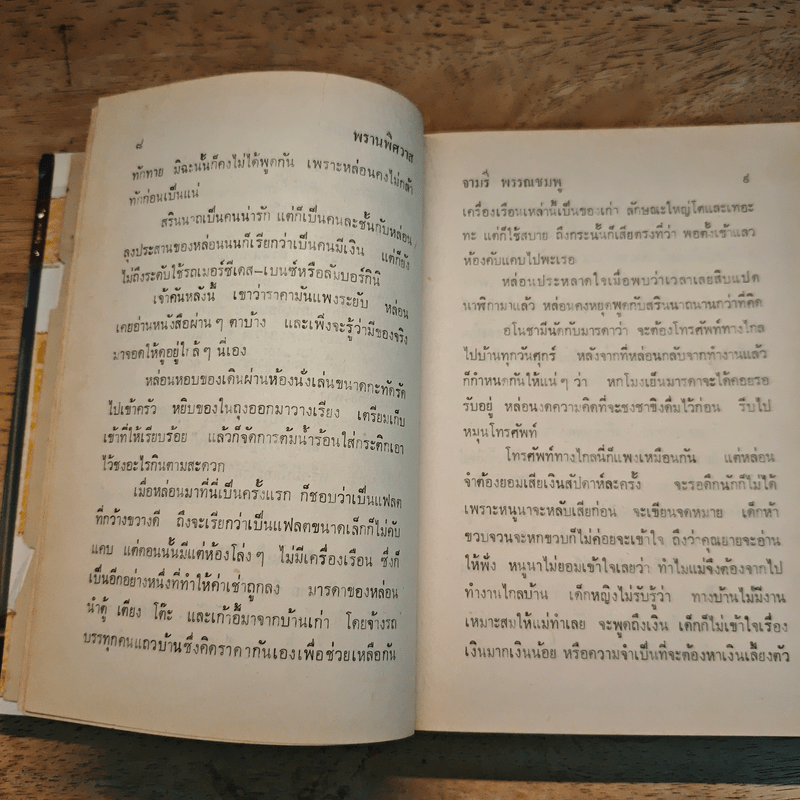 ๘
พรานพิศวาส
ทักทาย มิฉะนั้นก็คงไม่ได้พูดกัน เพราะหล่อนคงไม่กล้า
ทักก่อนเป็นแน่
สรินนาถเป็นคนน่ารัก แต่ก็เป็นคนละชั้นกับหล่อน
ลุงประสานของหล่อนนนก็เรียกว่าเป็นคนมีเงิน แต่ก็ยัง
ไม่ถึงระดับใช้รถเมอร์ซีเดส-เบนซ์หรือลัมบอร์กินิ
เจ้าคันหลังนี้ เขาว่าราคามันแพงระยับ หล่อน
เคยอ่านหนังสือผ่านๆ ตาบ้าง และเพิ่งจะรู้ว่ามีของจริง
มาจอดให้ดูอยู่ใกล้ๆ นี่เอง
หล่อนหอบของเดินผ่านห้องนั่งเล่นขนาดกะทัดรัด
ไปเข้าครัว หยิบของในถุงออกมาวางเรียง เตรียมเก็บ
เข้าที่ให้เรียบร้อย แล้วก็จัดการต้มน้ำร้อนใส่กระติกเอา
ไว้ชงอะไรกินตามสะดวก
เมื่อหล่อนมาที่นี่เป็นครั้งแรก ก็ชอบว่าเป็นแฟลต
ที่กว้างขวางดี ถึงจะเรียกว่าเป็นแฟลตขนาดเล็กก็ไม่คับ
แคบ แต่ตอนนั้นมีแต่ห้องโล่งๆ ไม่มีเครื่องเรือน ซึ่งก็
เป็นอีกอย่างหนึ่งที่ทำให้ค่าเช่าถูกลง มารดาของหล่อน
นำตู้ เตียง โต๊ะ และเก้าอี้มาจากบ้านเก่า โดยจ้างรถ
บรรทุกคนแถวบ้านซึ่งคิดราคากันเองเพื่อช่วยเหลือกัน
จามรี พรรณชมพู
๙
เครื่องเรือนเหล่านี้เป็นของเก่า ลักษณะใหญ่โตและเทอะ
ทะ แต่ก็ใช้สบาย ถึงกระนั้นก็เสียตรงที่ว่า พอตั้งเข้าแลว
ห้องคับแคบไปพะเรอ
หล่อนประหลาดใจเมื่อพบว่าเวลาเลยสิบแปด
นาฬิกามาแล้ว หล่อนคงหยุดพูดกับสรินนาถนานกว่าที่คิด
อโนชามีนัดกับมารดาว่า จะต้องโทรศัพท์ทางไกล
ไปบ้านทุกวันศุกร์ หลังจากที่หล่อนกลับจากทำงานแล้ว
ก็กำหนดกันให้แน่ๆ ว่า หกโมงเย็นมารดาจะได้คอยรอ
รับอยู่ หล่อนงดความคิดที่จะชงชาขิงดื่มไว้ก่อน รีบไป
หมุนโทรศัพท์
โทรศัพท์ทางไกลนี่ก็แพงเหมือนกัน แต่หล่อน
จำต้องยอมเสียเงินสัปดาห์ละครั้ง จะรอดึกนักก็ไม่ได้
เพราะหนูนาจะหลับเสียก่อน จะเขียนจดหมาย เด็กห้า
ขวบจวนจะหกขวบก็ไม่ค่อยจะเข้าใจ ถึงว่าคุณยายจะอ่าน
ให้ฟัง หนูนาไม่ยอมเข้าใจเลยว่า ทำไมแม่จึงต้องจากไป
ทำงานไกลบ้าน เด็กหญิงไม่รับรู้ว่า ทางบ้านไม่มีงาน
เหมาะสมให้แม่ทำเลย จะพูดถึงเงิน เด็กก็ไม่เข้าใจเรื่อง
เงินมากเงินน้อย หรือความจำเป็นที่จะต้องหาเงินเลี้ยงตัว